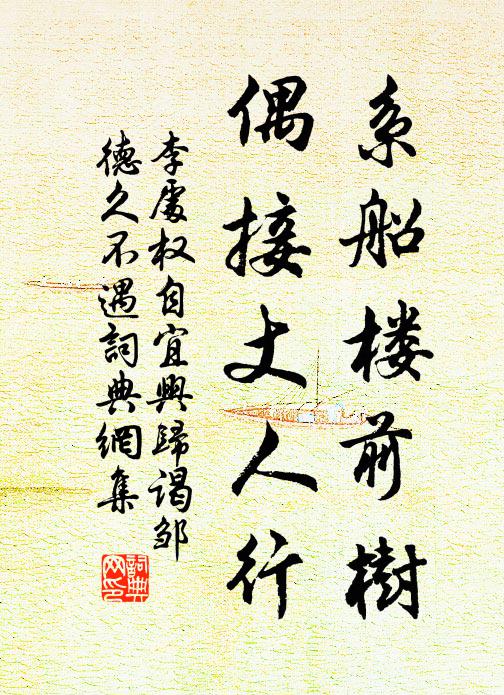 系船楼前樹
偶接丈人行
李處权自宜興歸谒邹
德久不遇詞典網集
詞典
网印